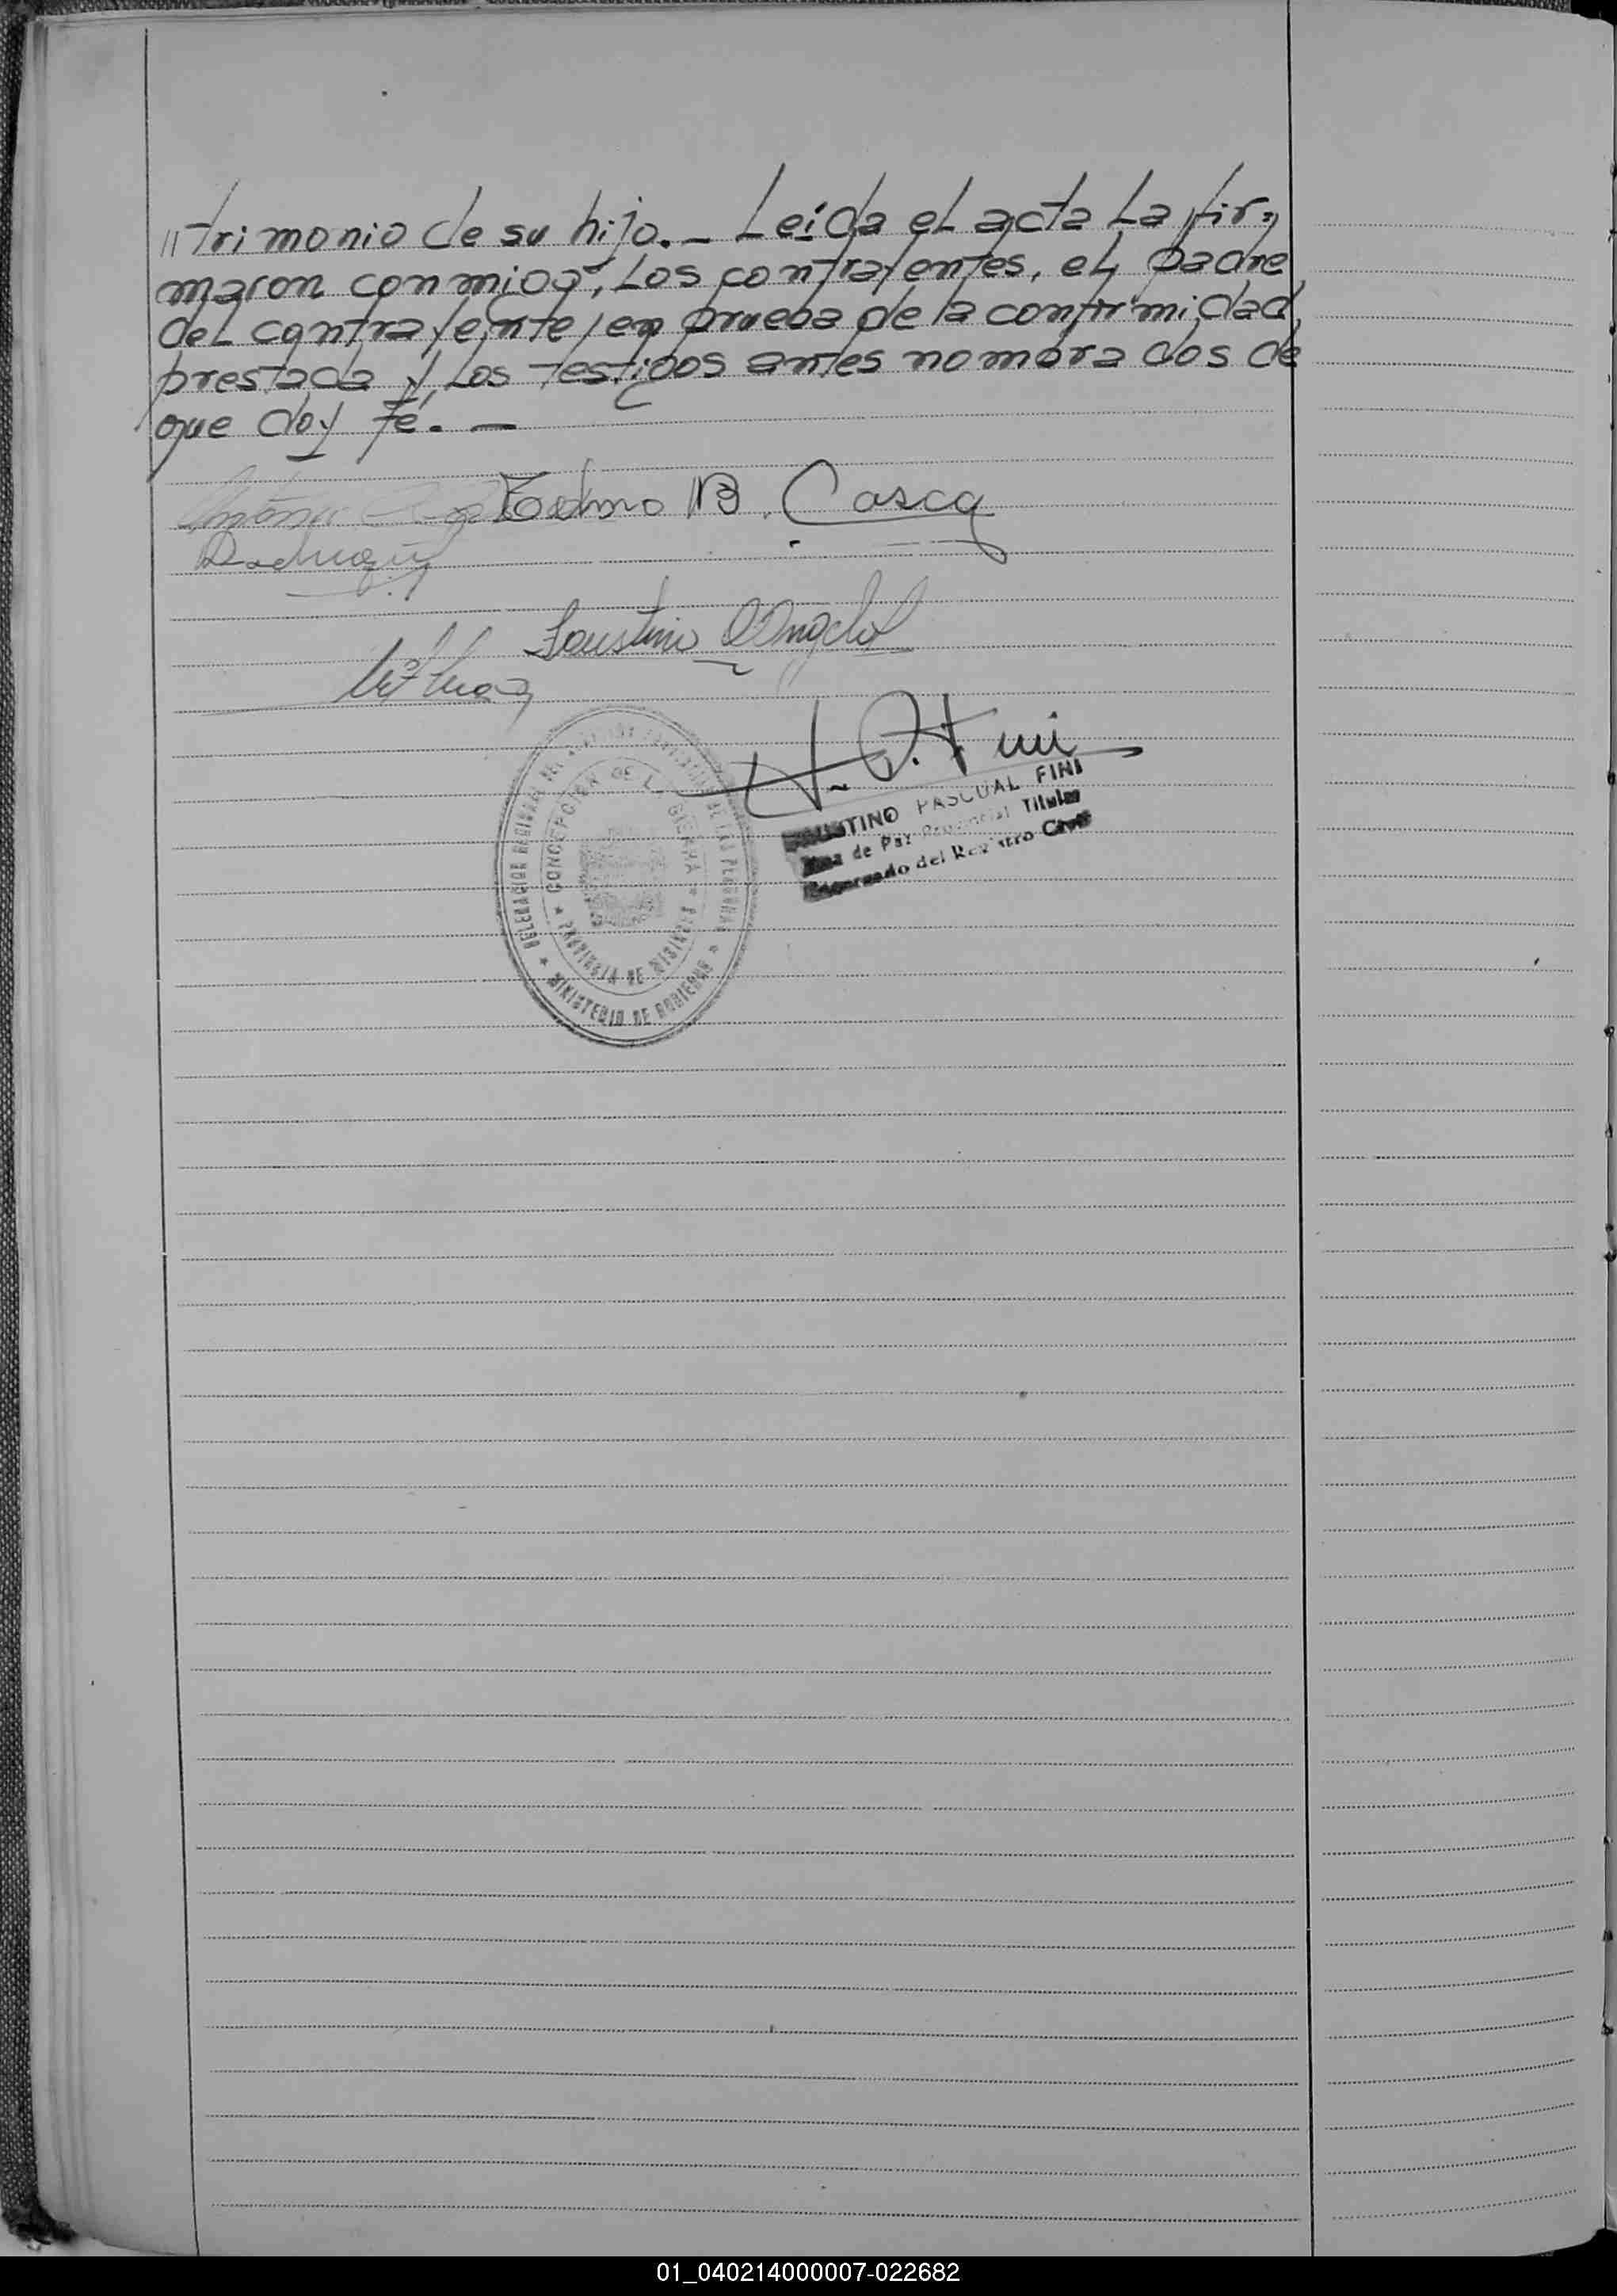 "trimonio de su hijo. — Leída el acta la fir=
maron conmigo, los contrayentes, el padre
del contrayente, en prueba de la confirmidad
prestada y los testigos antes nombrados de
que doy Fé. —
B. Casca
Faustino
FAUSTINO PASCUAL FINI
Juez de Paz Provincial Titular
Encargado del Registro Civil
DELEGACION REGIONAL DEL REGISTRO PROVINCIAL DE LAS PERSONAS
CONCEPCION DE LA SIERRA
PROVINCIA DE MISIONES
MINISTERIO DE GOBIERNO
01_040214000007-022682